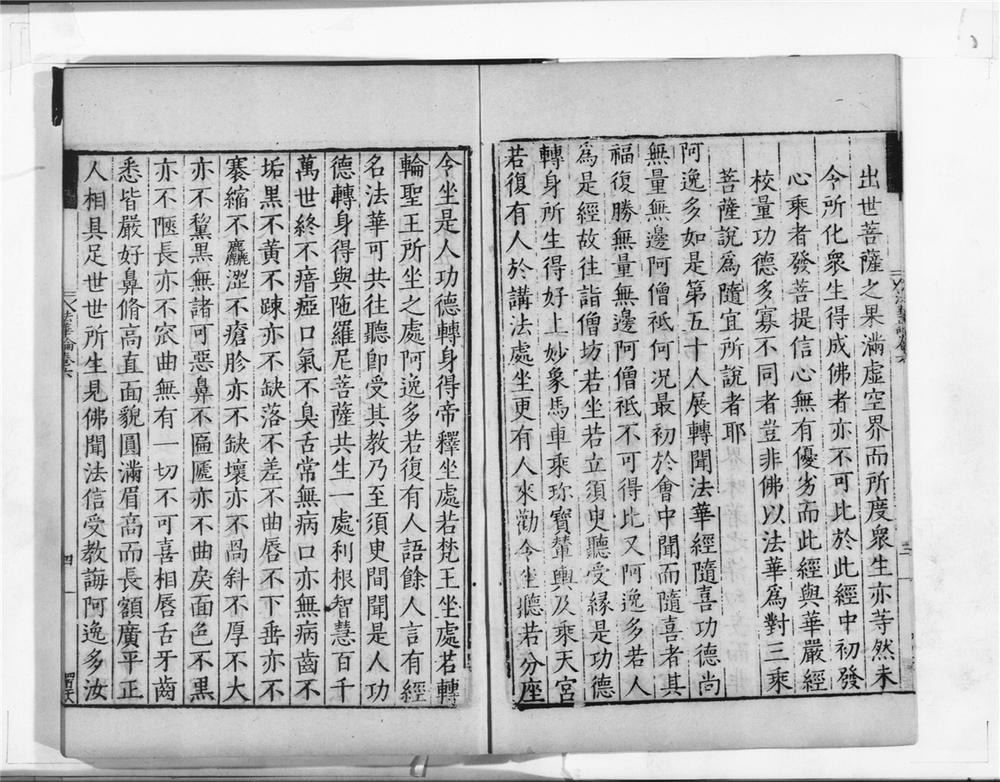 出世菩薩之果滿虛空界而所度衆生亦等然未
令所化衆生得成佛者亦不可比於此經中初發
心乘者發菩提信心無有優劣而此經與華嚴經
校量功德多寡不同者豈非佛以法華爲對三乘
菩薩說爲隨宜所說者耶
阿逸多如是第五十人展轉聞法華經隨喜功德尚
無量無邊阿僧祇何況最初於會中聞而隨喜者其
福復勝無量無邊阿僧祇不可得比又阿逸多若人
爲是經故往詣僧坊若坐若立須臾聽受緣是功德
轉身所生得好上妙象馬車乘珎寶輦輿及乘天宮
若復有人於講法處坐更有人來勸令坐聽若分座
三
令坐是人功德轉身得帝釋坐處若梵王坐處若轉
輪聖王所坐之處阿逸多若復有人語餘人言有經
名法華可共往聽卽受其教乃至須臾間聞是人功
德轉身得與陁羅尼菩薩共生一處利根智慧百千
萬世終不瘖瘂口氣不臭舌常無病口亦無病齒不
垢黑不黃不踈亦不缺落不差不曲唇不下垂亦不
褰縮不麤澀不瘡胗亦不缺壞亦不喎斜不厚不大
亦不黧黑無諸可惡鼻不匾㔸亦不曲戾面色不黑
亦不陿長亦不窊曲無有一切不可喜相唇舌牙齒
悉皆嚴好鼻脩高直面貌圓滿眉高而長額廣平正
人相具足世世所生見佛聞法信受教誨阿逸多汝
四